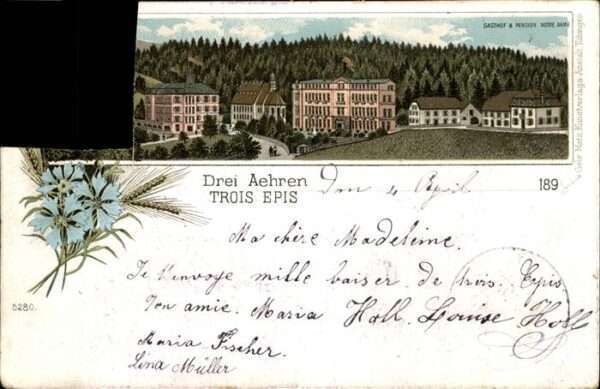 GASTHOF & PENSION NOTRE DAME
Gebr Metz Kunstverlags Anstalt Tübingen
Drei Aehren
TROIS EPIS
Den 4 April 189
Ma chère Madeleine.
Je t'envoye mille baiser de trois. Epis
Ton amie. Maria Holl. Louise Holl
Maria Fischer.
Lina Müller
5280.